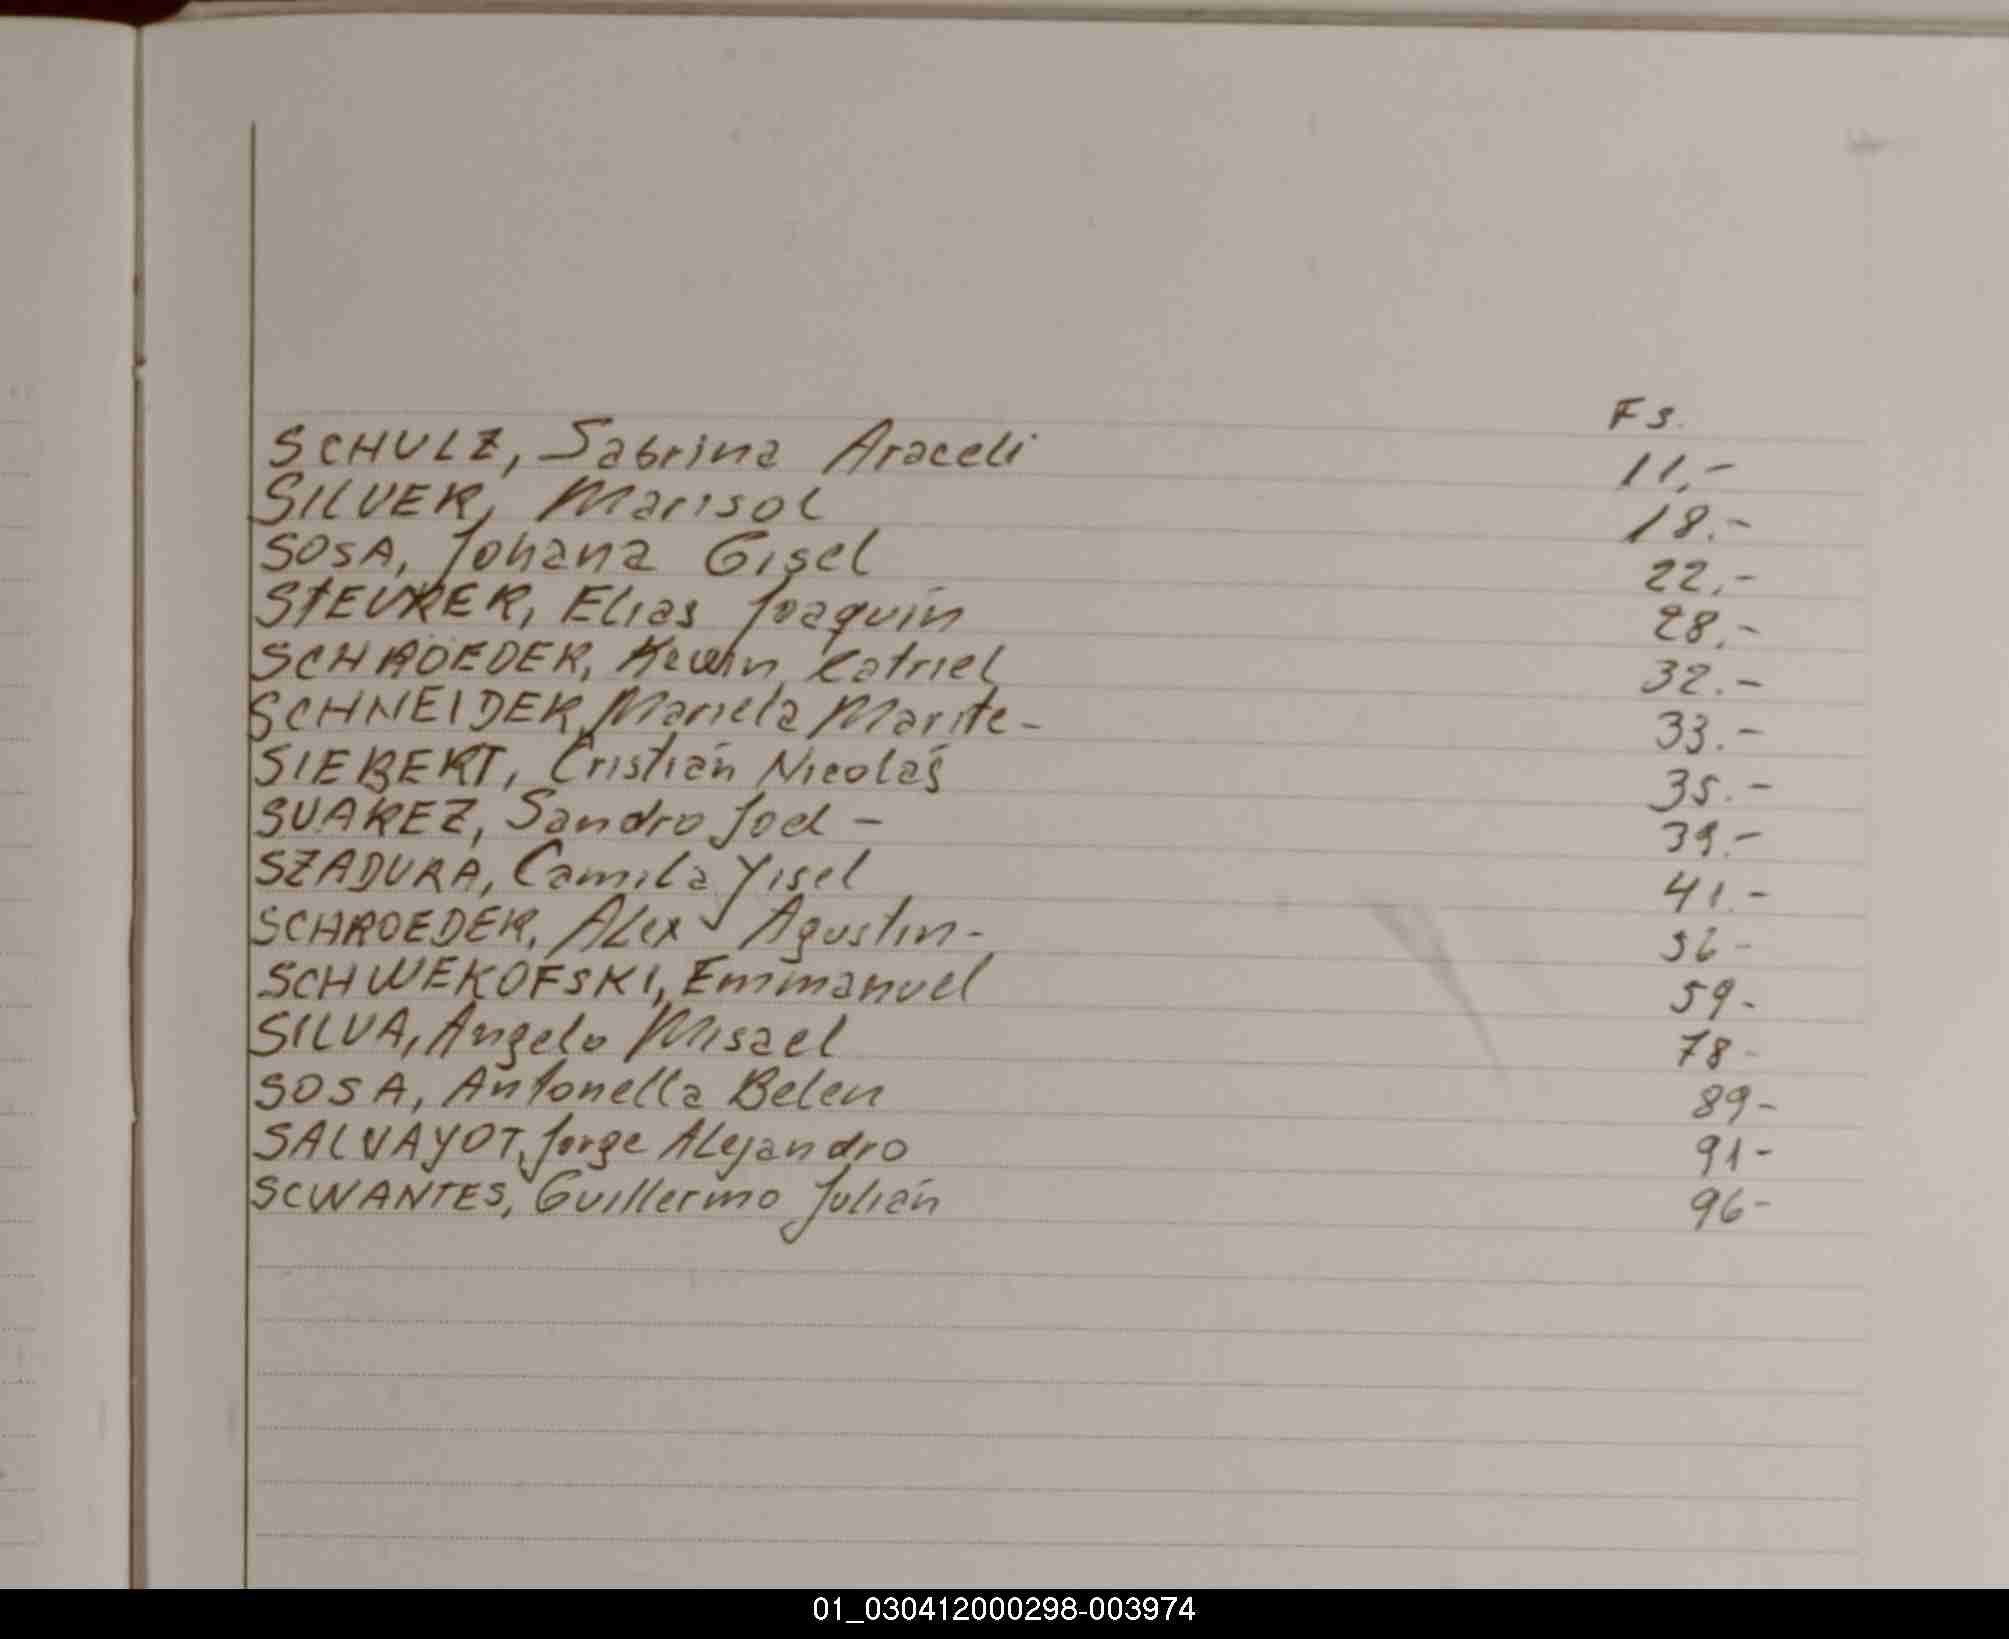 Fs.
SCHULZ, Sabrina Araceli 11,-
SILVER, Marisol 18.-
SOSA, Johana Gisel 22,-
STEURER, Elias Joaquín 28,-
SCHROEDER, Kewin Catriel 32.-
SCHNEIDER, Mariela Marite - 33.-
SIEBERT, Cristián Nicolás 35.-
SUAREZ, Sandro Joel - 39.-
SZADURA, Camila Yisel 41.-
SCHROEDER, Alex Agustin - 56-
SCHWEKOFSKI, Emmanuel 59-
SILVA, Angelo Misael 78-
SOSA, Antonella Belen 89-
SALVAYOT, Jorge Alejandro 91-
SCWANTES, Guillermo Julián 96-
01_030412000298-003974